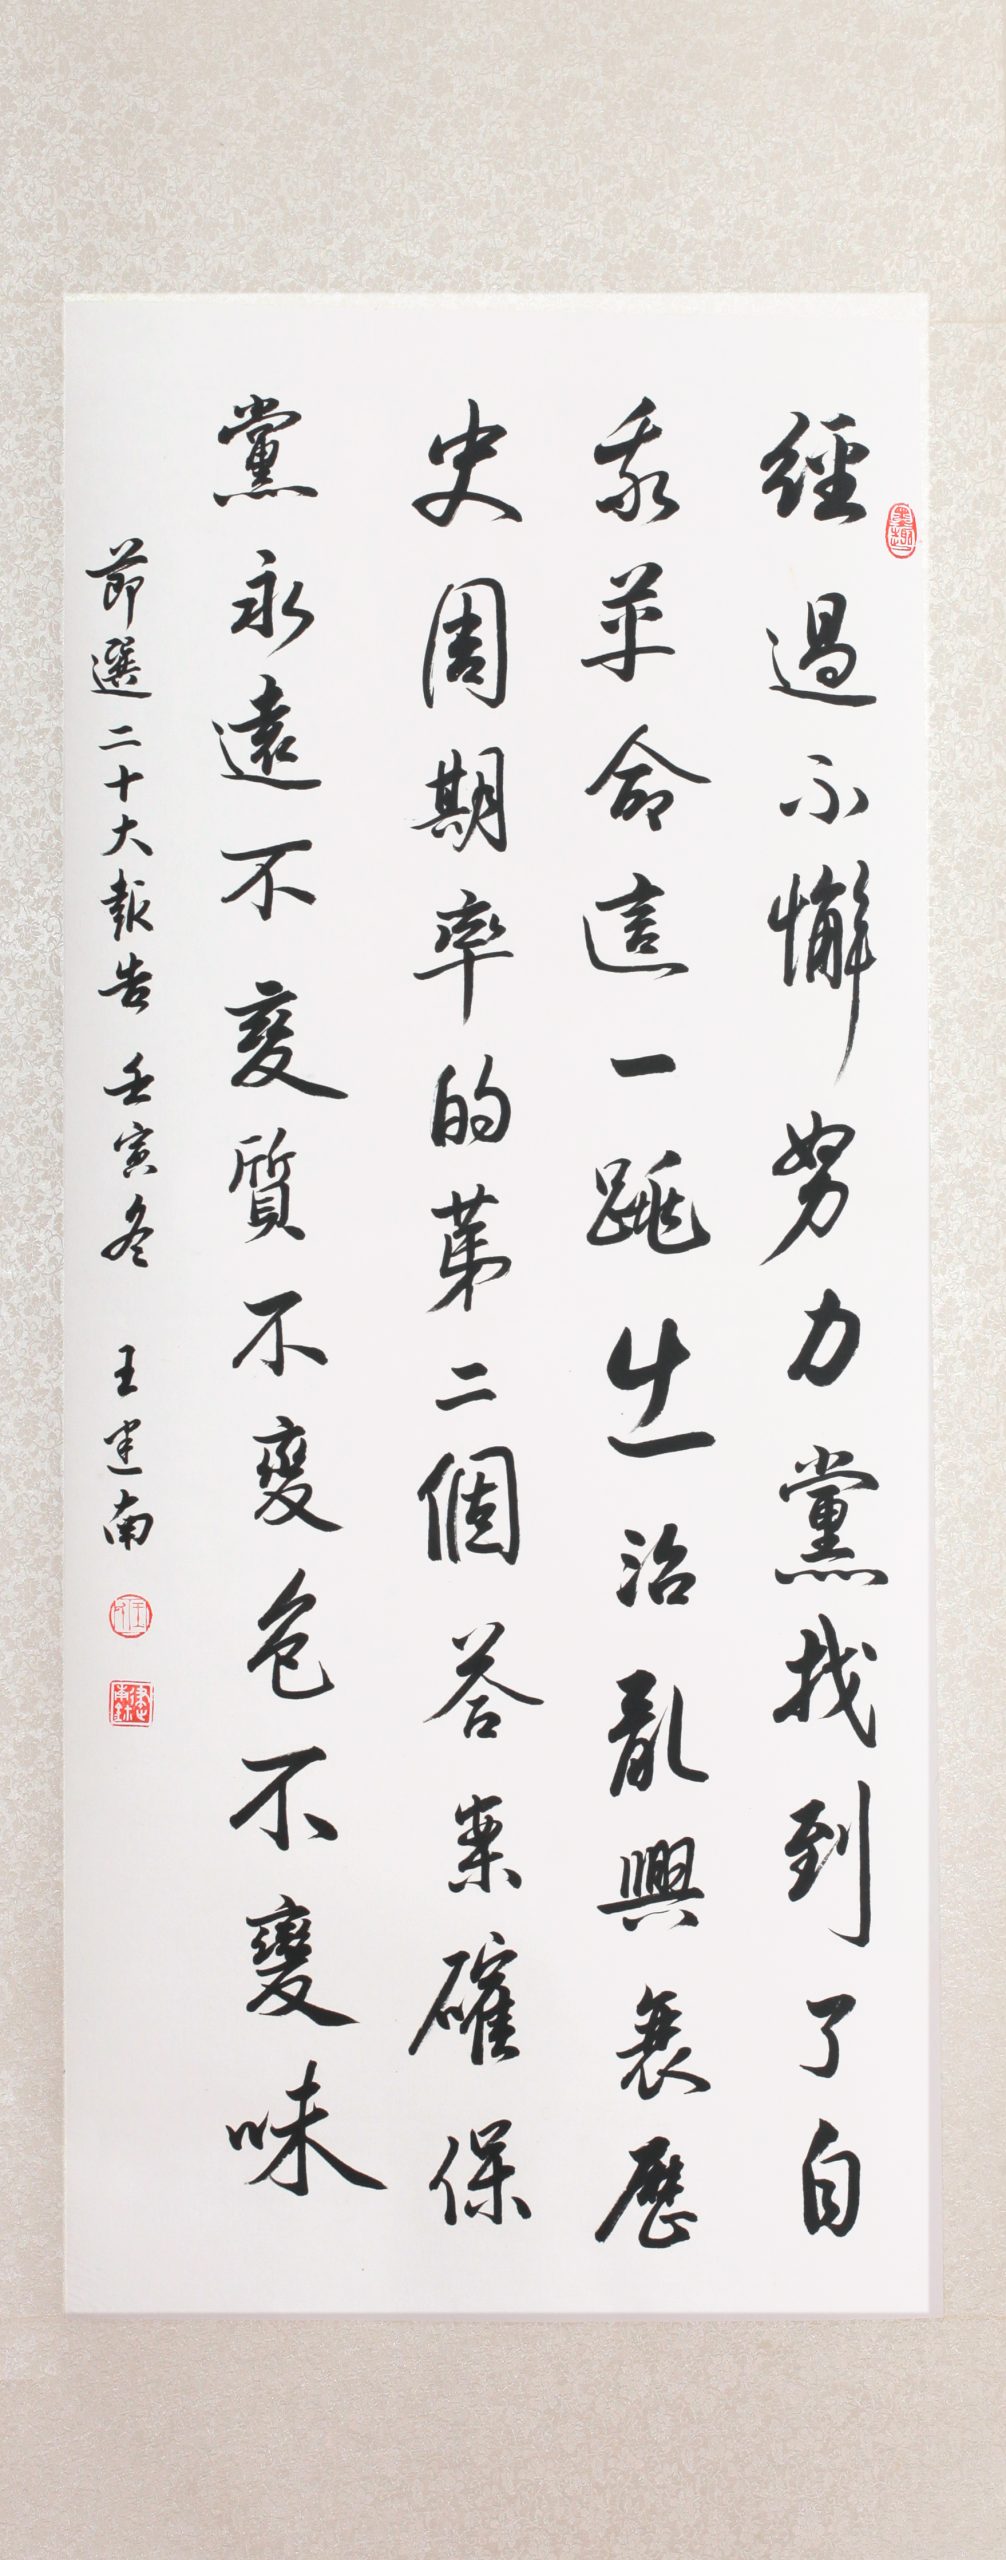 墨趣
經過不懈努力黨找到了自
我革命這一跳出治亂興衰歷
史周期率的第二個答案確保
黨永遠不變質不變色不變味
節選二十大報告 壬寅冬 王建南